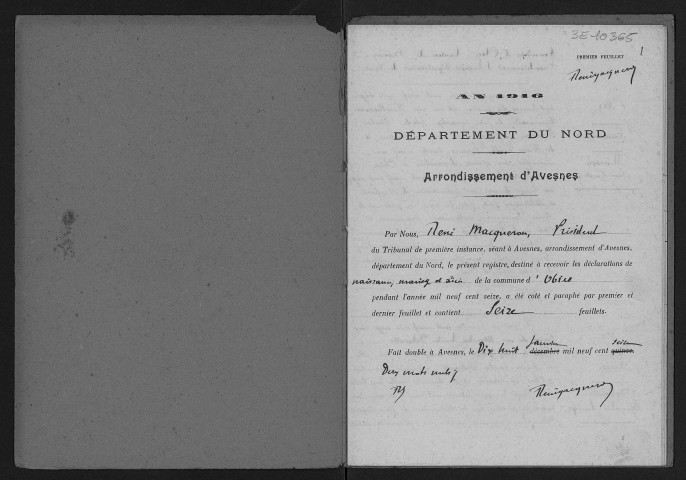 3E-10365
1
PREMIER FEUILLET
AN 1916
DÉPARTEMENT DU NORD
Arrondissement d'Avesnes
Par Nous, René Macqueron, Président
du Tribunal de première instance, séant à Avesnes, arrondissement d'Avesnes,
département du Nord, le présent registre, destiné à recevoir les déclarations de
naissance, mariage et décès de la commune d'
pendant l'année mil neuf cent seize, a été coté et paraphé par premier et
dernier feuillet et contient Seize feuillets.
Fait double à Avesnes, le Dix huit Janvier décembre mil neuf cent seize quinze.
Deux mots nuls